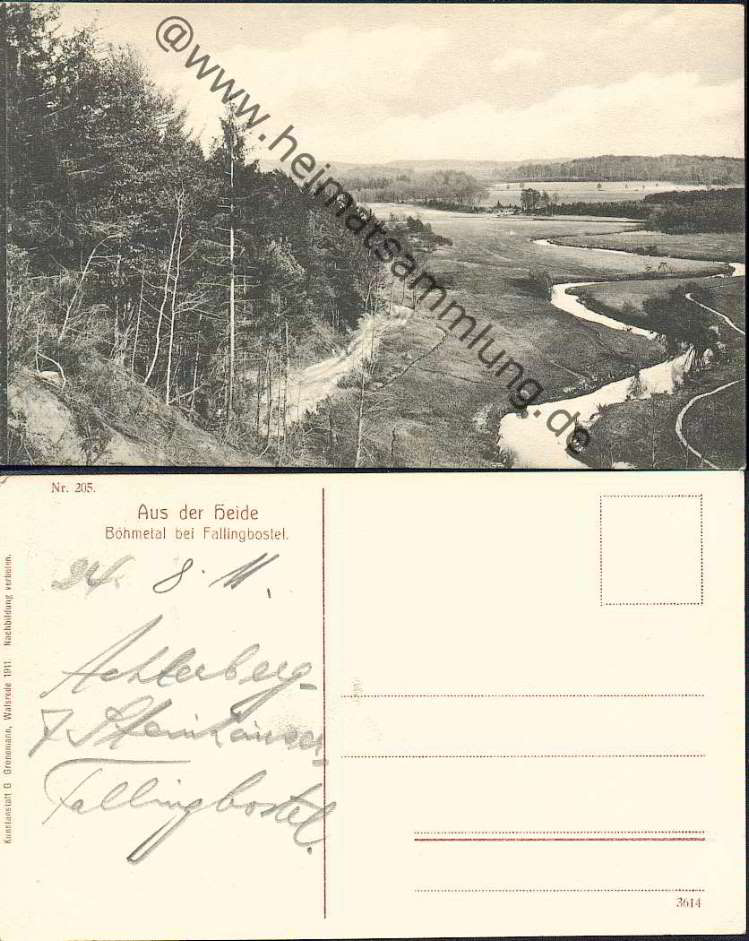 @www.heimatsammlung.de
Nr. 205.
Aus der Heide
Böhmetal bei Fallingbostel.
24. 8. 11.
Achterberg-
7 Steinhäuser-
Fallingbostel.
Kunstanstalt G Gronemann, Walsrode 1911. Nachbildung verboten.
3614